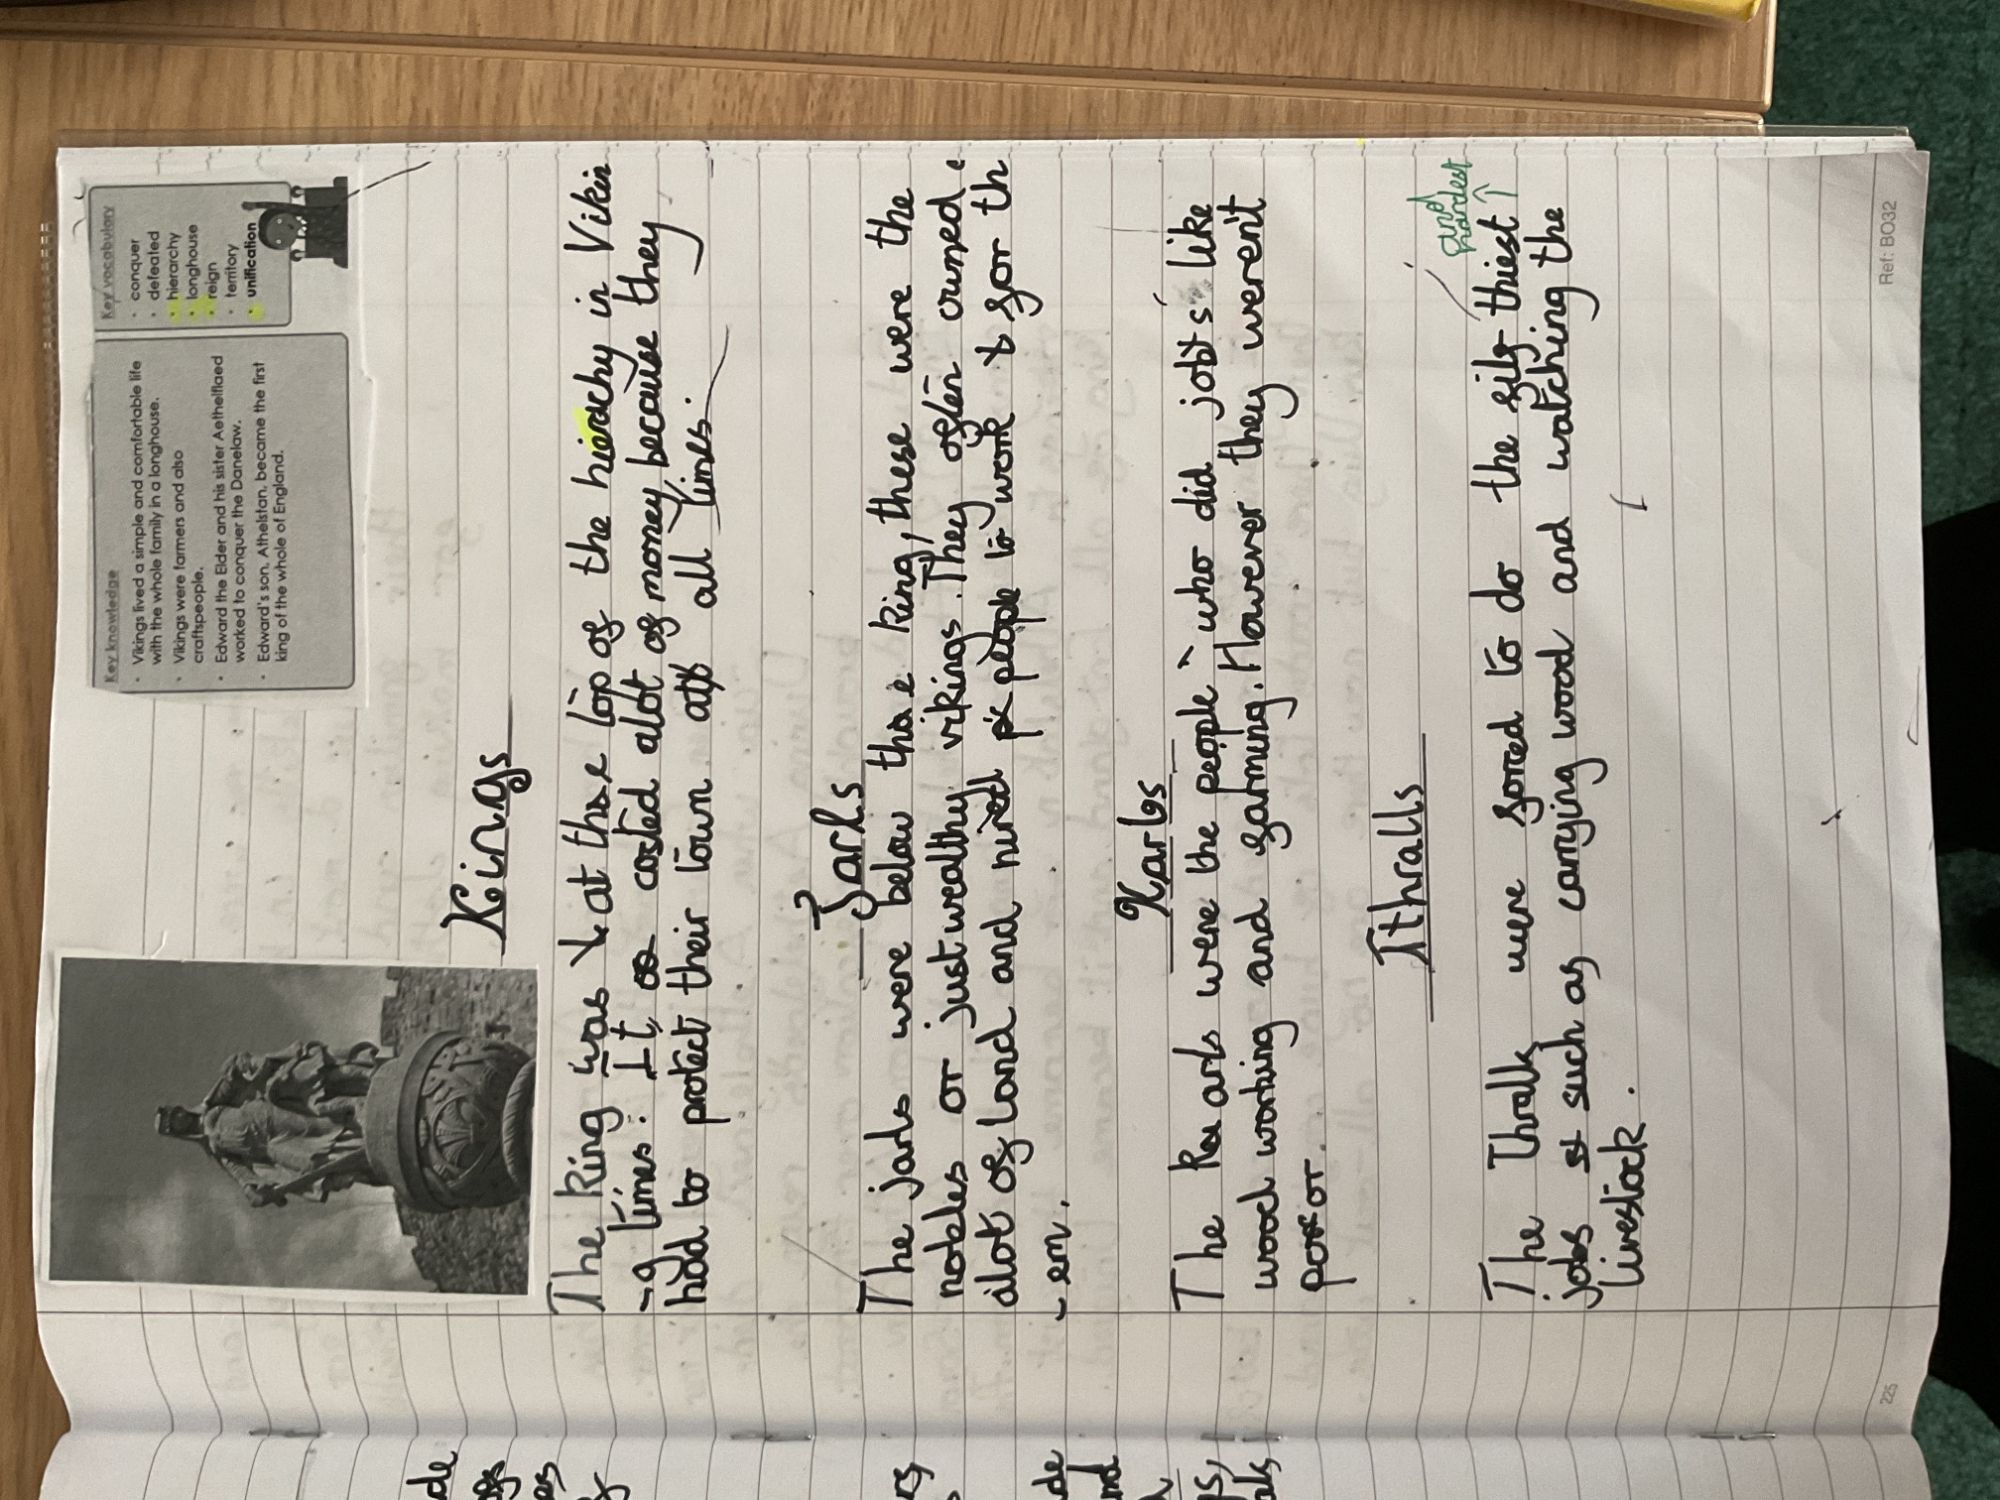 Key knowledge
• Vikings lived a simple and comfortable life
with the whole family in a longhouse.
• Vikings were farmers and also
craftspeople.
• Edward the Elder and his sister Aethelflaed
worked to conquer the Danelaw.
• Edward's son, Athelstan, became the first
king of the whole of England.
Key vocabulary
• conquer
• defeated
• hierarchy
• longhouse
• reign
• territory
• unification
Keings
The king was at the top of the hierachy in Vikin
-g times. It costed alot of money because they
had to protect their town at all times.
Jarls
The jarls were below the king, these were the
nobles or just wealthy vikings. They often owned
alot of land and hired people to work for th
-em.
Karls
The Karls were the people who did jobs like
wood working and farming. However they weren't
poor.
Thralls
and
hardest
The Thralls were forced to do the filthiest
jobs such as carrying wood and watching the
livestock.
225
Ref: BO32